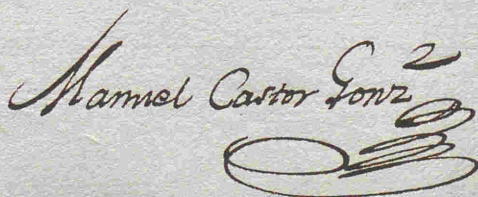 Manuel Castor Gonz²